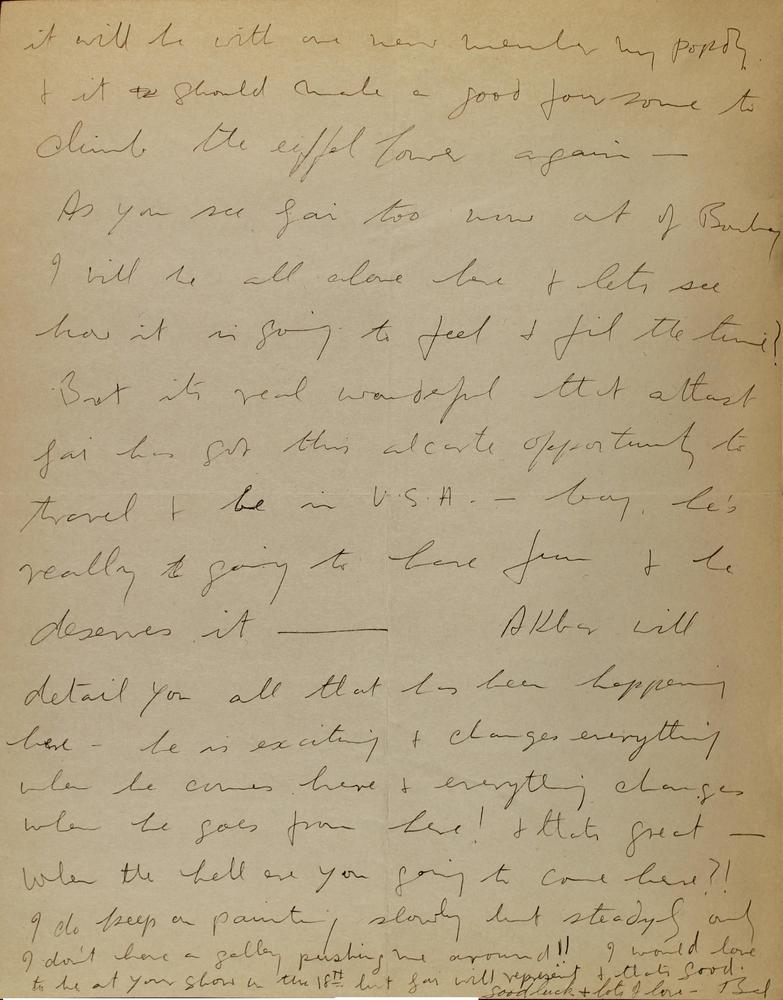 it will be with one new member my poppdy.
& it should make a good foursome to
climb the eiffel tower again —
As you see Gai too now out of Bombay
I will be all alone here & lets see
how it is going to feel & fil the time?
But its real wondeful that atlast
Gai has got this alcarte opportunity to
travel & be in U.S.A. — boy, he's
really going to have fun & he
deserves it — Akbar will
detail you all that has been happening
here - he is exciting & changes everything
when he comes here & everything changes
when he goes from here! & thats great —
When the hell are you going to come here?!
I do keep on painting slowly but steadyly only
I don't have a gallery pushing me around!! I would love
to be at your show on the 18th but Gai will represent & thats good.
Goodluck & lots of love - Bal